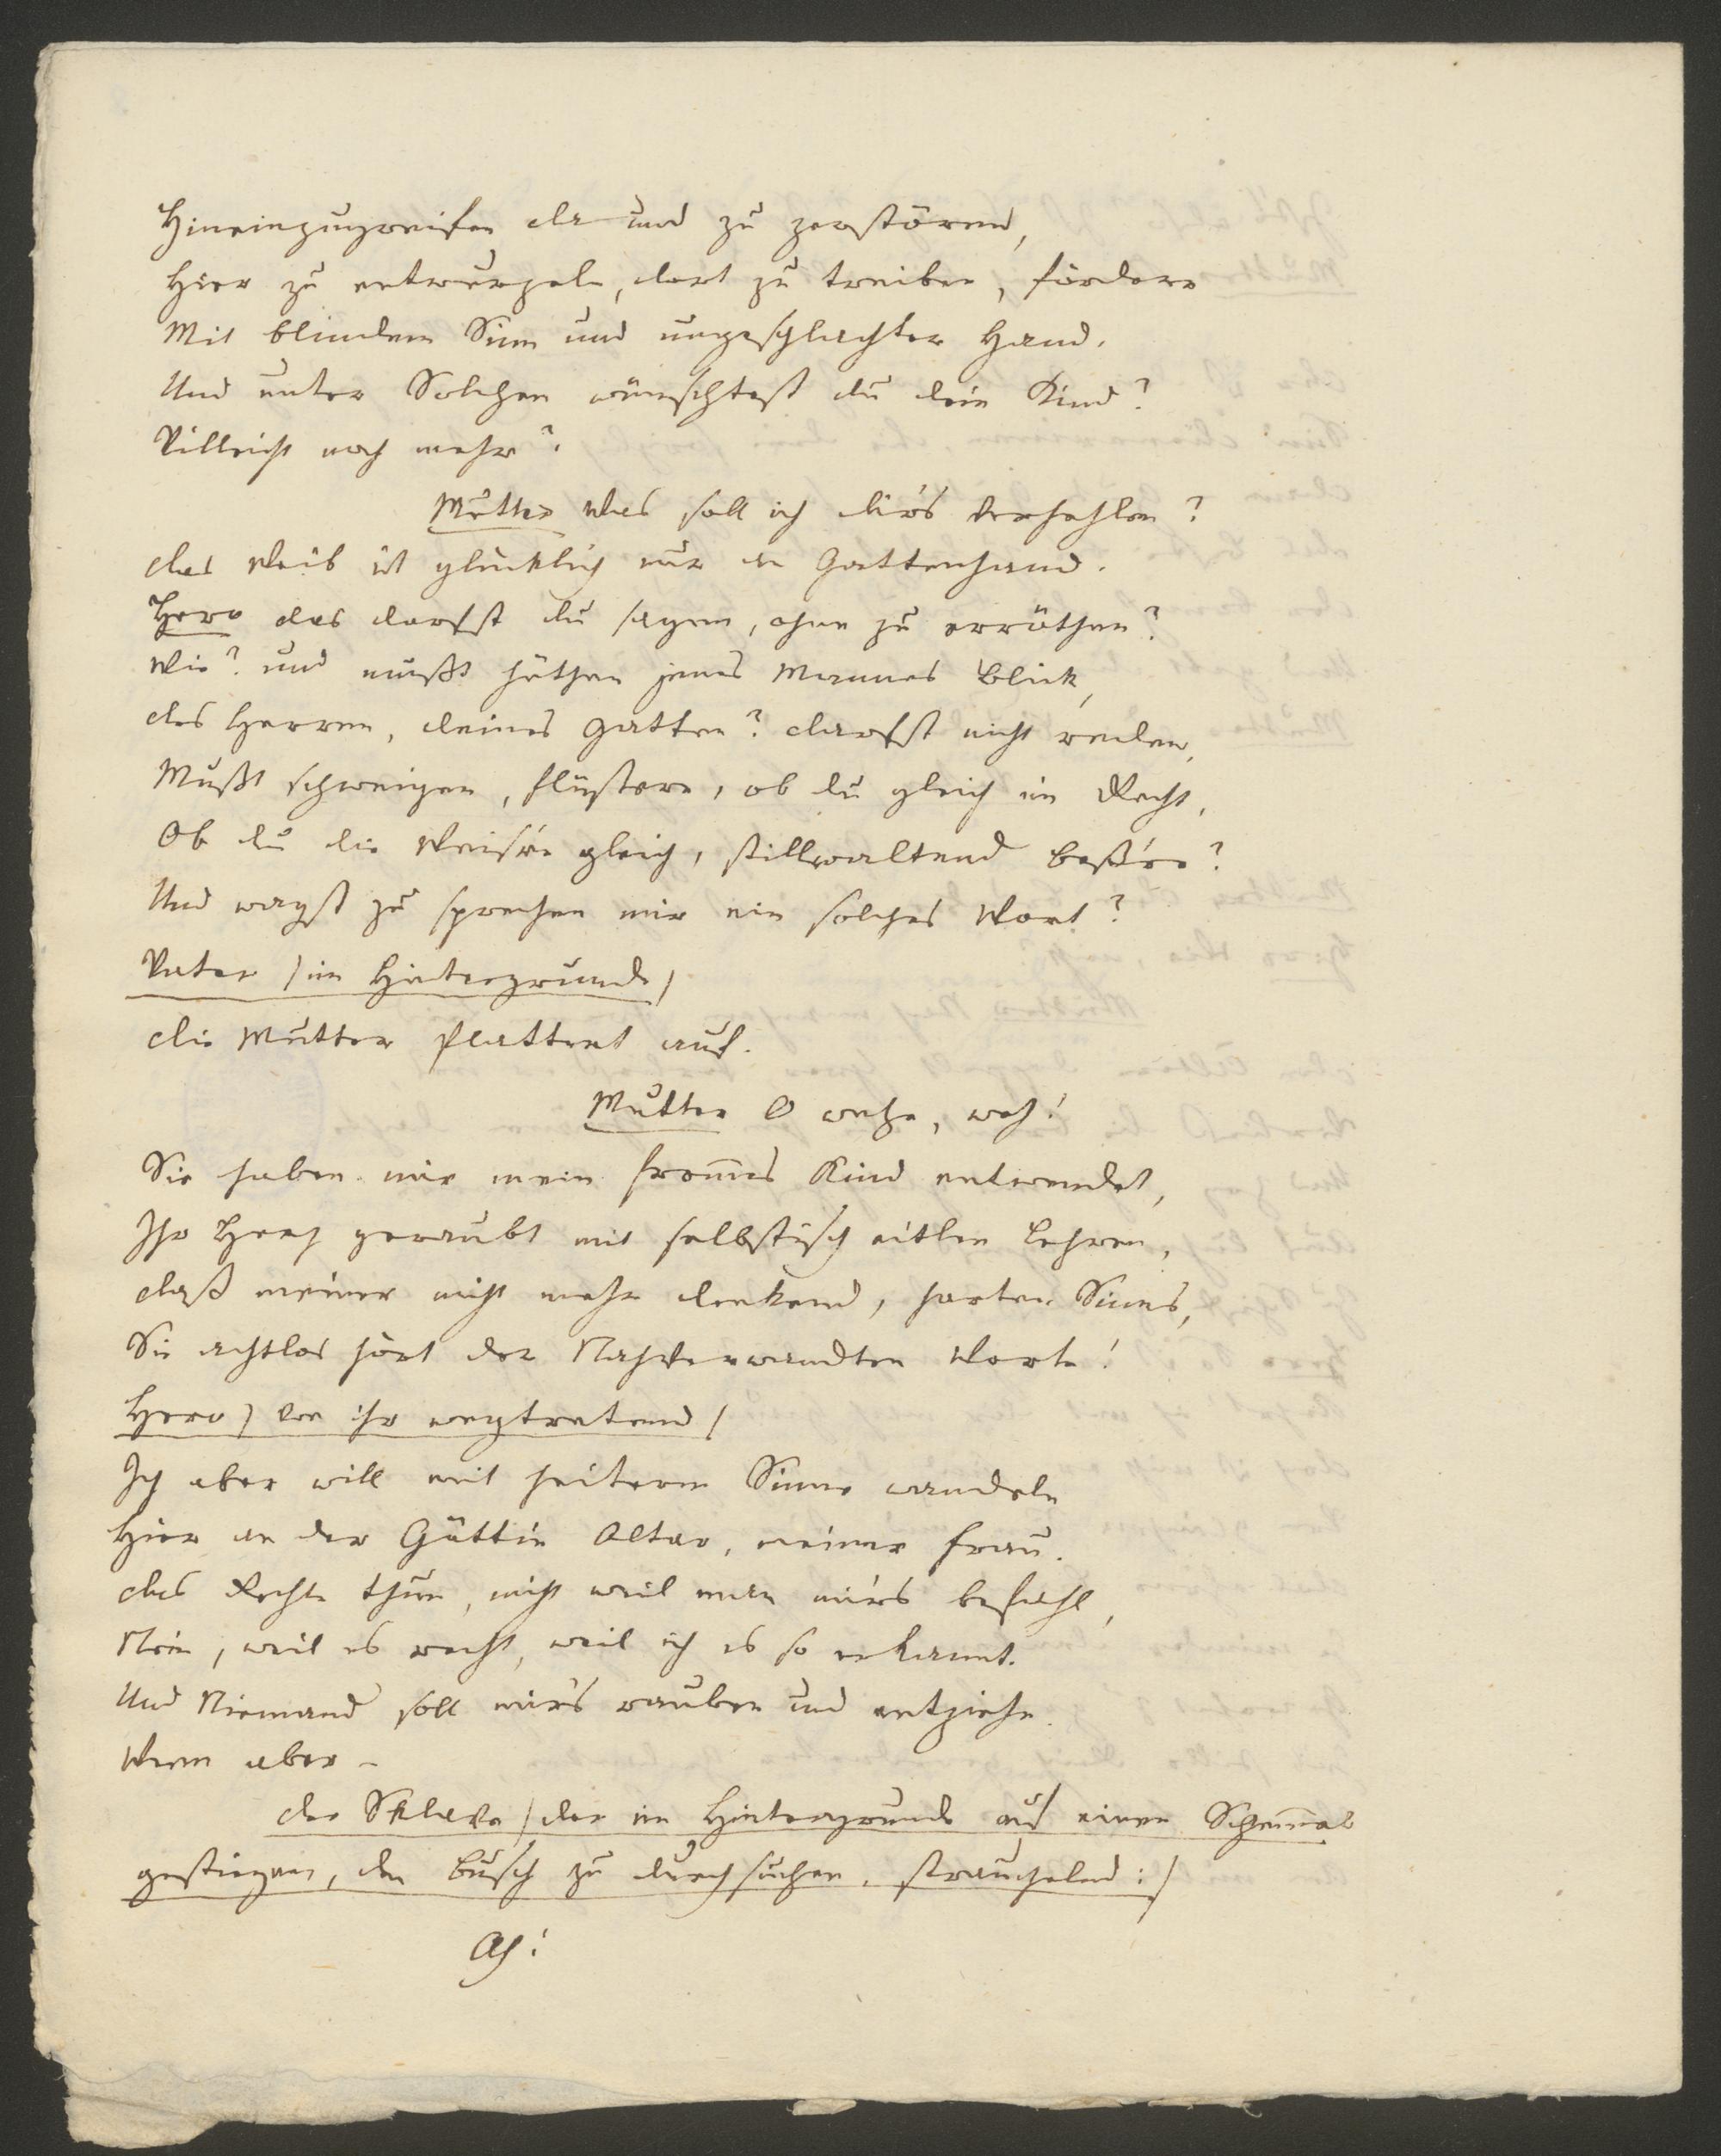 Hineinzugreifen da und zu zerstören,
Hier zu entwurzeln, dort zu treiben, fördern
Mit blindem Sinn und ungeschlachter Hand.
Und unter Solchen wünschtest du dein Kind?
Villeicht noch mehr?
Mutter Was soll ich dir's verhehlen?
das Weib ist glücklich nur an Gattenhand.
Hero das darfst du sagen, ohne zu erröthen?
Wie? und mußt hüthen jenes Mannes Blick,
des Herren, deines Gatten? darfst nicht reden,
Mußt schweigen, flüstern, ob du gleich im Recht,
Ob du die Weis're gleich, stillwaltend beß're?
Und wagst zu sprechen mir ein solches Wort?
Vater /im Hintergrunde/
die Mutter flattert auf.
Mutter O wehe, weh!
Sie haben mir mein from̅es Kind entwendet,
Ihr Herz geraubt mit selbstisch eitlen Lehren,
daß meiner nicht mehr denkend, harten Sinns,
Sie achtlos hört der Nahverwandten Worte!
Hero / von ihr wegtretend /
Ich aber will mit heiterm Sinne wandeln
Hier an der Göttin Altar, meiner Frau.
das Rechte thun, nicht weil man mirs befahl,
Nein, weil es recht, weil ich es so erkannt.
Und Niemand soll mir's rauben und entziehn.
Wenn aber –
der Sklave /der im Hintergrunde auf einen Schem̅el
gestiegen, den Busch zu durchsuchen, strauchelnd:/
Ah!